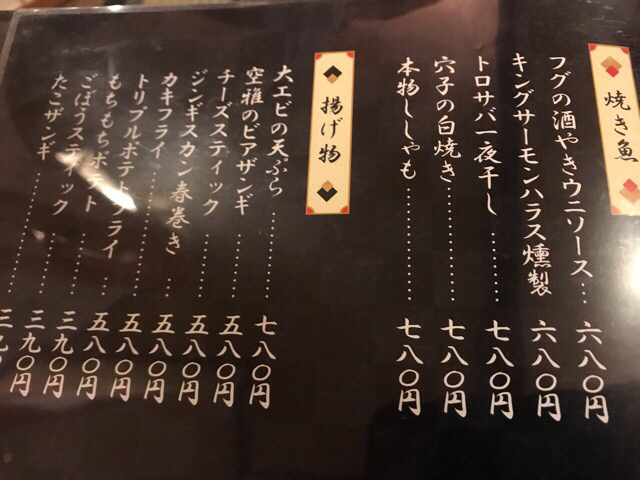 焼き魚
フグの酒やきウニソース…六八〇円
キングサーモンハラス燻製 六八〇円
トロサバ一夜干し…………七八〇円
穴子の白焼き…………七八〇円
本物ししゃも…………七八〇円
揚げ物
大エビの天ぷら…………七八〇円
空雅のビアザンギ…………五八〇円
チーズスティック…………五八〇円
ジンギスカン春巻き……五八〇円
カキフライ…………五八〇円
トリプルポテトフライ…五八〇円
もちもちポテト…………三九〇円
ごぼうスティック…………三九〇円
たこザンギ…………三九〇円